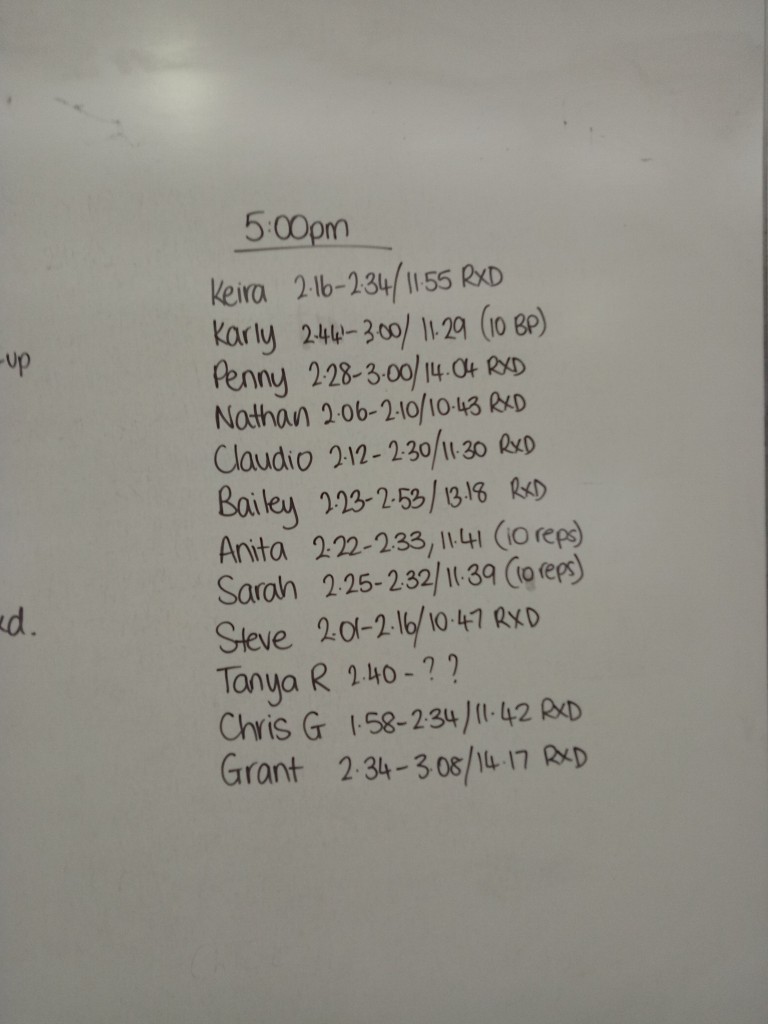 5:00pm
Keira 2.16-2.34/11.55 RXD
Karly 2.44-3.00/ 11.29 (10 BP)
-up
Penny 2.28-3.00/14.04 RXD
Nathan 2.06-2.10/10.43 RXD
Claudio 2.12-2.30/11.30 RXD
Bailey 2.23-2.53/13.18 RXD
Anita 2.22-2.33, 11.41 (10 reps)
Sarah 2.25-2.32/11.39 (10 reps)
xd.
Steve 2.01-2.16/10.47 RXD
Tanya R 2.40 - ? ?
Chris G 1.58-2.34/11.42 RXD
Grant 2.34-3.08/14.17 RXD